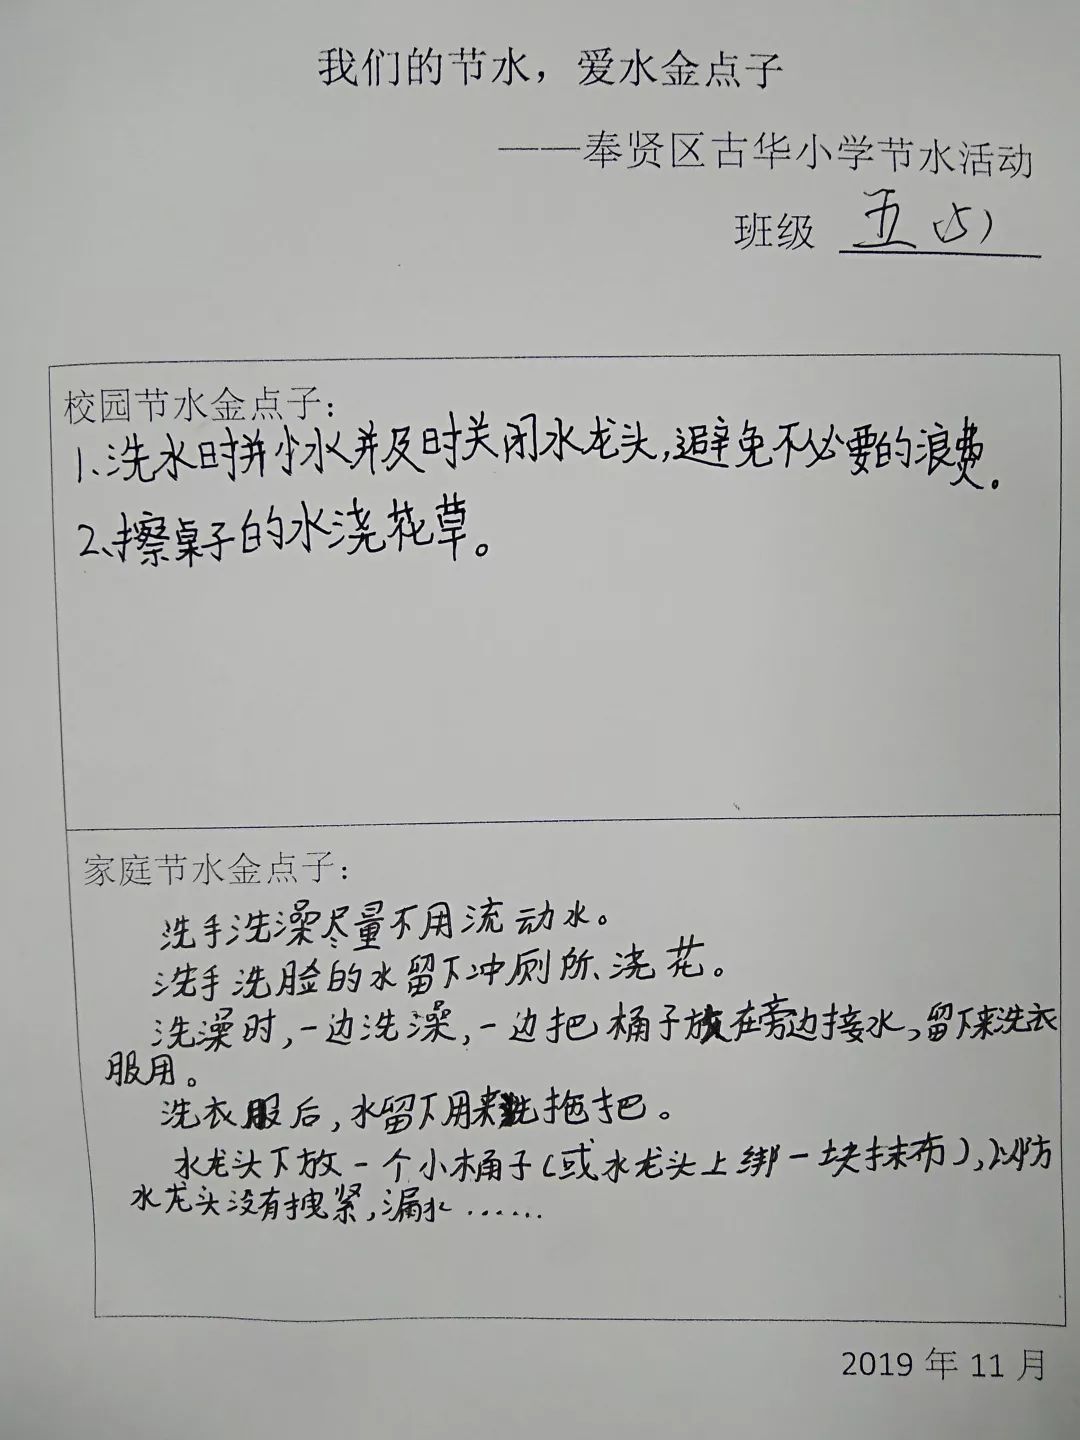 我们的节水，爱水金点子
——奉贤区古华小学节水活动
班级 五（5）
校园节水金点子：
1、洗水时拼小水并及时关闭水龙头，避免不必要的浪费。
2、擦桌子的水浇花草。
家庭节水金点子：
洗手洗澡尽量不用流动水。
洗手洗脸的水留下冲厕所、浇花。
洗澡时，一边洗澡，一边把桶子放在旁边接水，留下来洗衣
服用。
洗衣服后，水留下用来洗拖把。
水龙头下放一个小桶子（或水龙头上绑一块抹布），以防
水龙头没有拽紧，漏水……
2019 年 11 月